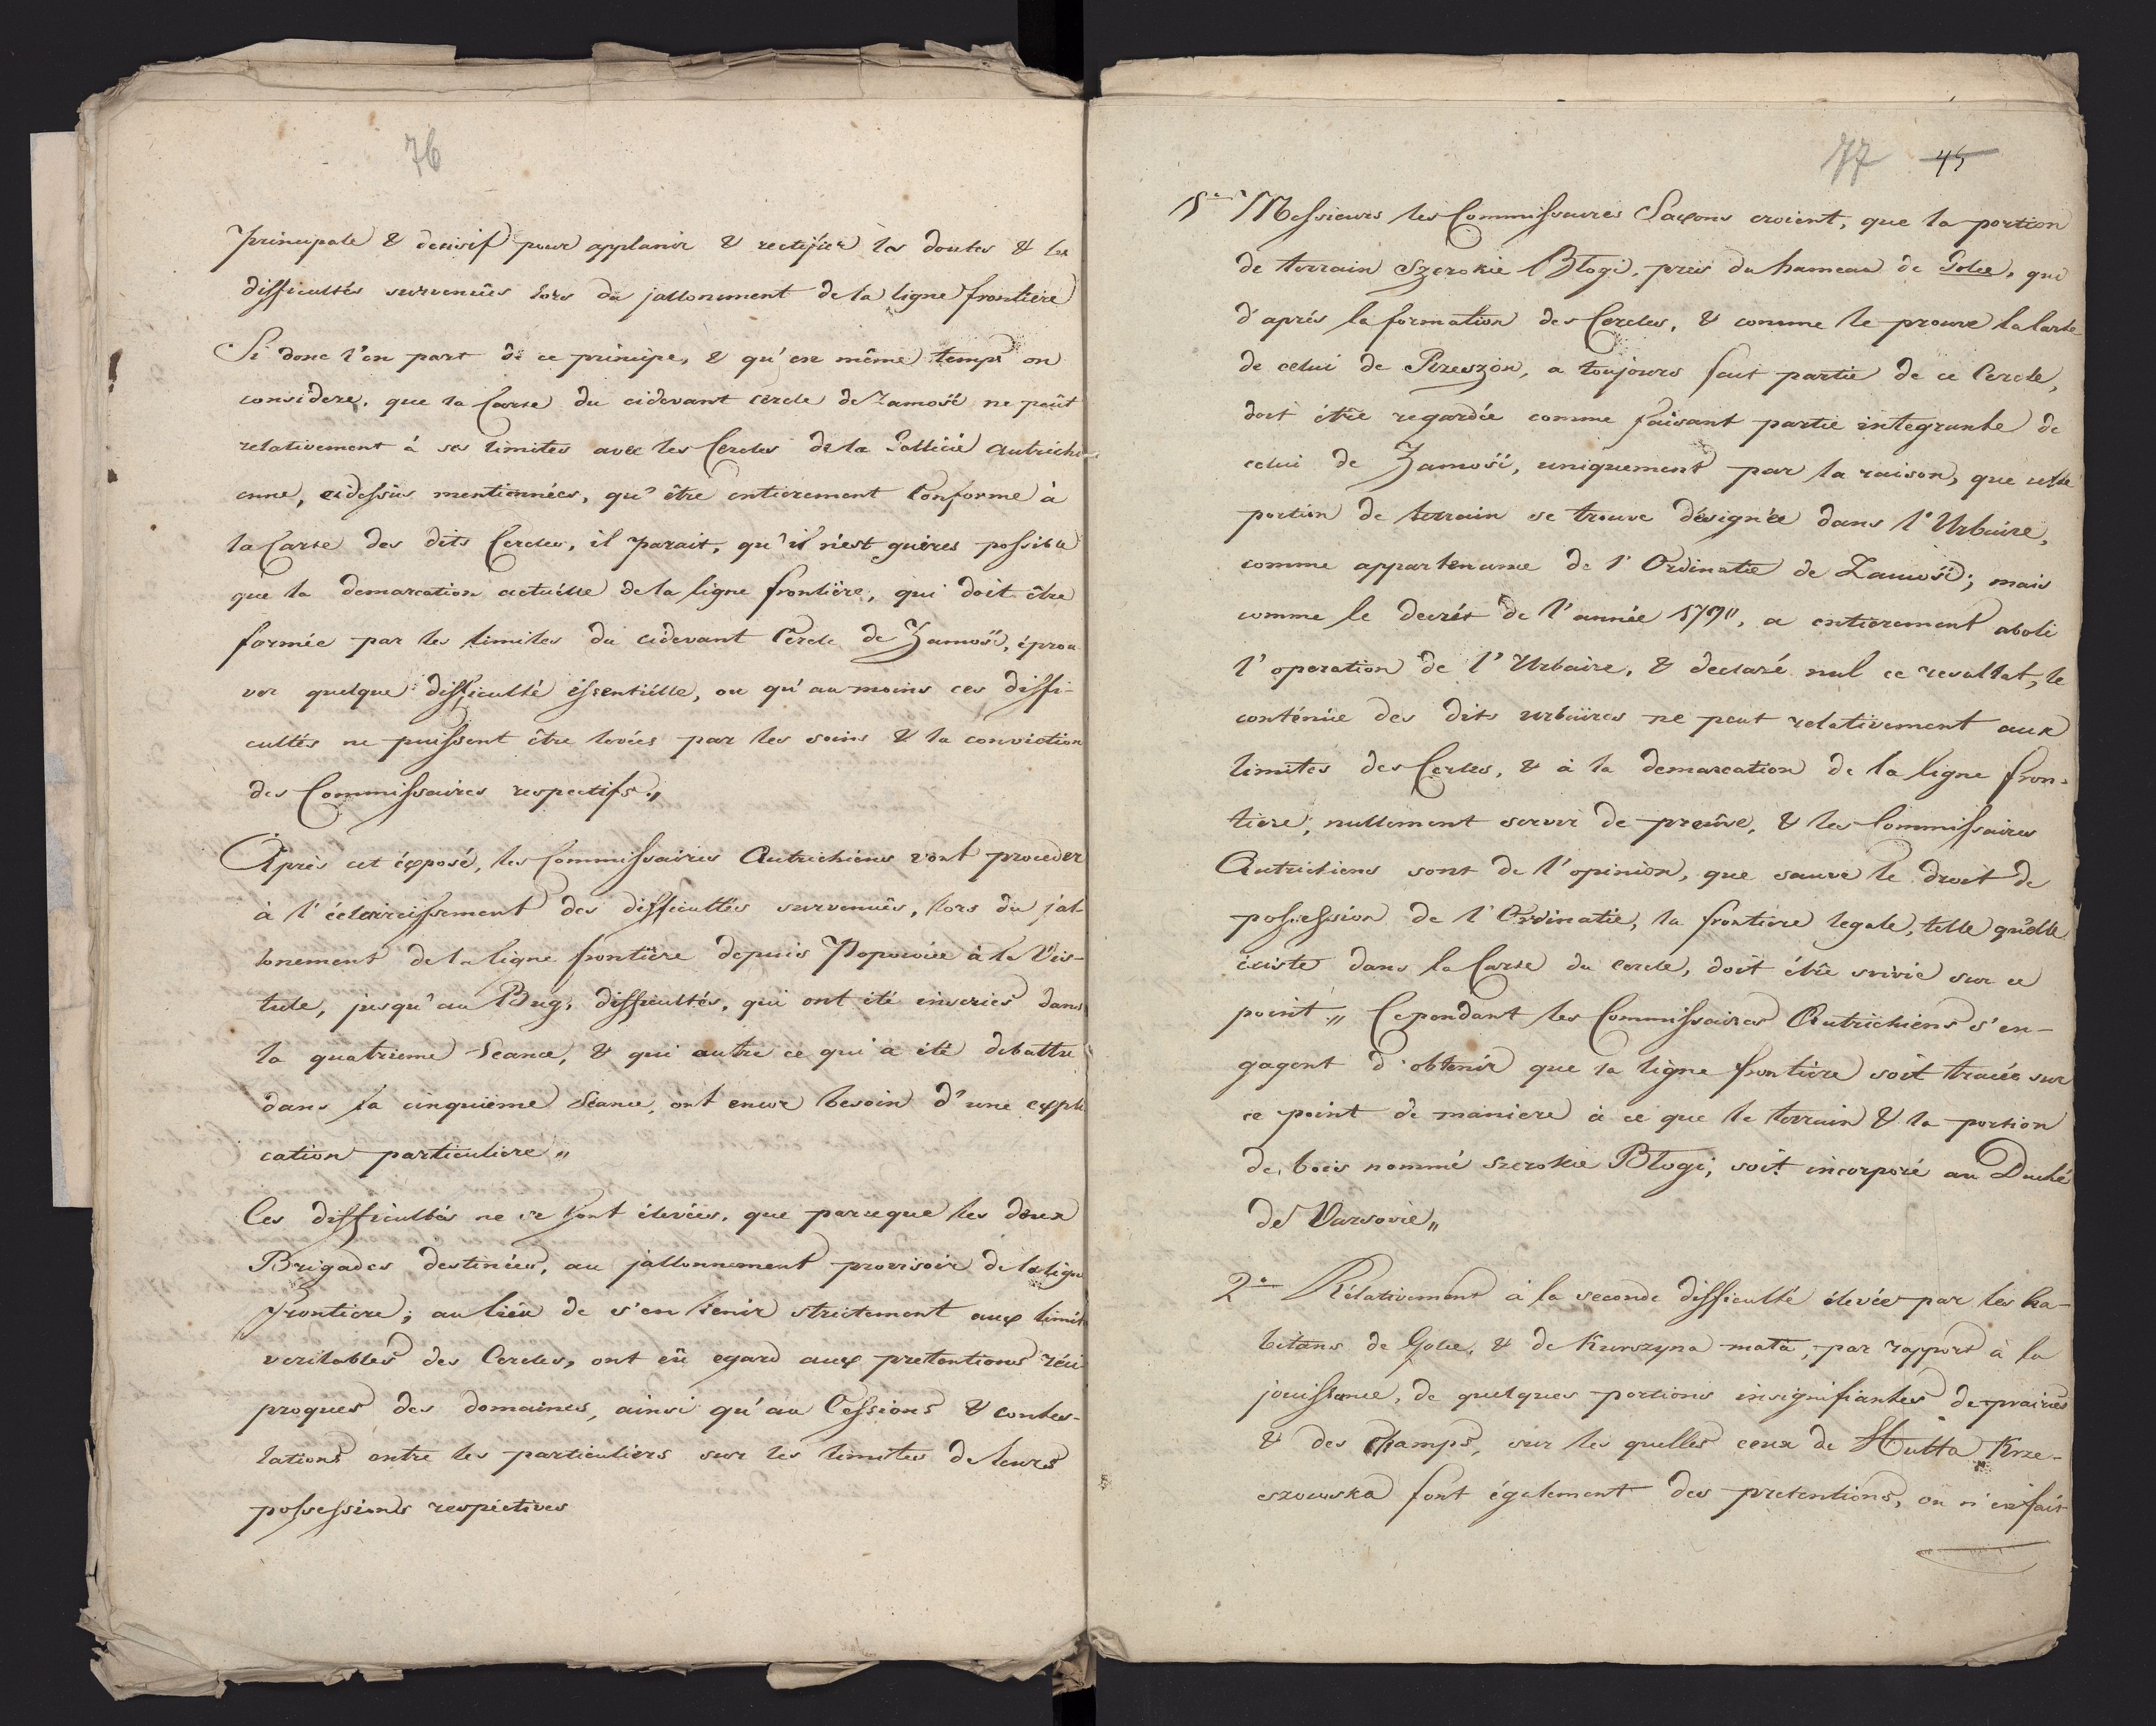 76
principale & decisif pour applanir & rectifier les doutes & les
difficultés survenûes lors du jallonnement de la ligne frontière
Si donc l'on part de ce principe, & qu'en même temps on
considere, que la Carte du cidevant cercle de Zamość ne peût
relativement à ses limites avec les Cercles de la Gallicie Autrichi
enne, cidessus mentionnées, qu'être entierement Conforme à
la Carte des dits Cercles, il parait, qu'il n'est guères possible
que la demarcation actuélle de la ligne frontière, qui doit être
formée par les limites du cidevant Cercle de Zamość, éprou
ver quelque difficulté éssentiélle, ou qu'au moins ces diffi-
cultés ne puissent être levées par les soins & la conviction
des Commissaires respectifs.,,
Après cet éxposé, les Commissaires Autrichiens vont proceder
à l'éclaircissement des difficultés survenuês, lors du jal-
lonement de la ligne frontière depuis Popowice à la Vis-
tule, jusqu'au Bug, difficultés, qui ont été inscries dans
la quatrieme Seance, & qui outre ce qui a été debattre
dans la cinquieme Séance, ont encor besoin d'une expli
cation particuliere ,,
Ces difficultés ne se sont élevées, que parceque les deux
Brigades destinées, au jallonnement provisoir de la ligne
frontiere; au lièu de s'en tenir strictement aux limite
veritables des Cercles, ont eû egard aux pretentions réci
proques des domaines, ainsi qu'au Cessions & contes-
tations entre les particuliers sur les limites de leurs
possessions respectives
77 45
1° Messieurs les Commissaires Saxons croient, que la portion
de terrain Szerokie Blogi, près du hameau de Golce, qui
d'aprés la formation des Cercles, & comme le prouve la Carte
de celui de Rzeszòn, a toujours fait partie de ce Cercle,
doit étre regardée comme faisant partie integrante de
celui de Zamość, uniquement par la raison, que cette
portion de terrain se trouve désignée dans l'Urbaire,
comme appartenance de l'Ordinatie de Zamość; mais
comme le decrét de l'année , a entierement aboli
l'operation de l'Urbaire, & declaré nul ce resultat, le
conténüe des dits urbaires ne peut relativement aux
limites des Cercles, & à la demarcation de la ligne fron-
tiere, nullement servir de preûve, & les Commissaires
Autrichiens sont de l'opinion, que sauve le droit de
possession de l'Ordinatie, la frontiere legale, telle qu'elle
éxiste dans la Carte du cercle, doit étre suivie sur ce
point ,, Cependant les Commissaires Autrichiens s'en-
gagent d'obtenir que la ligne frontière soit tracée sur
ce point de maniere à ce que le terrain & la portion
de bois nommé szerokie Blogi; soit incorporé au Duché
de Varsovie ,,
2° Rélativement à la seconde difficulté élevée par les ha-
bitans de Golce, & de Kurszyna mała, par rapport à la
jouissance, de quelques portions insignifiantes de prairies
& des champs, sur les quelles ceux de Hutta Krze-
szowska font également des pretentions, on n'en fait